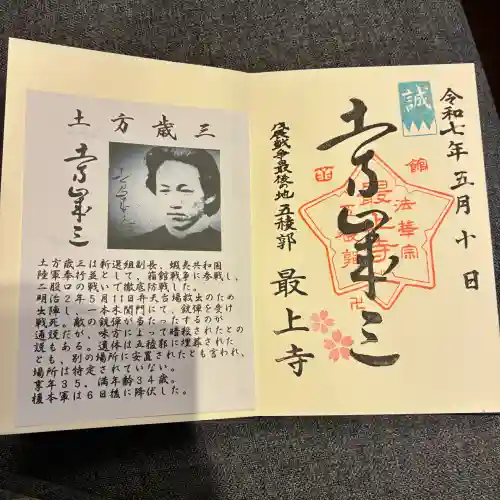 土方歳三
土方歳三
土方歳三は新選組副長、蝦夷共和国
陸軍奉行並として、箱館戦争に参戦し、
二股口の戦いで徹底防戦した。
明治2年5月11日弁天台場救出のため
出陣し、一本木関門にて、銃弾を受け
戦死。敵の銃弾が当たったするのが
通説だが、味方によって暗殺されたとの
説もある。遺体は五稜郭に埋葬された
とも、別の場所に安置されたとも言われ、
場所は特定されていない。
享年35。満年齢34歳。
榎本軍は6日後に降伏した。
令和七年五月十日
誠
土方歳三
戊辰戦争最後の地 五稜郭
最上寺
函館
法華宗
最上寺
五稜郭
卍